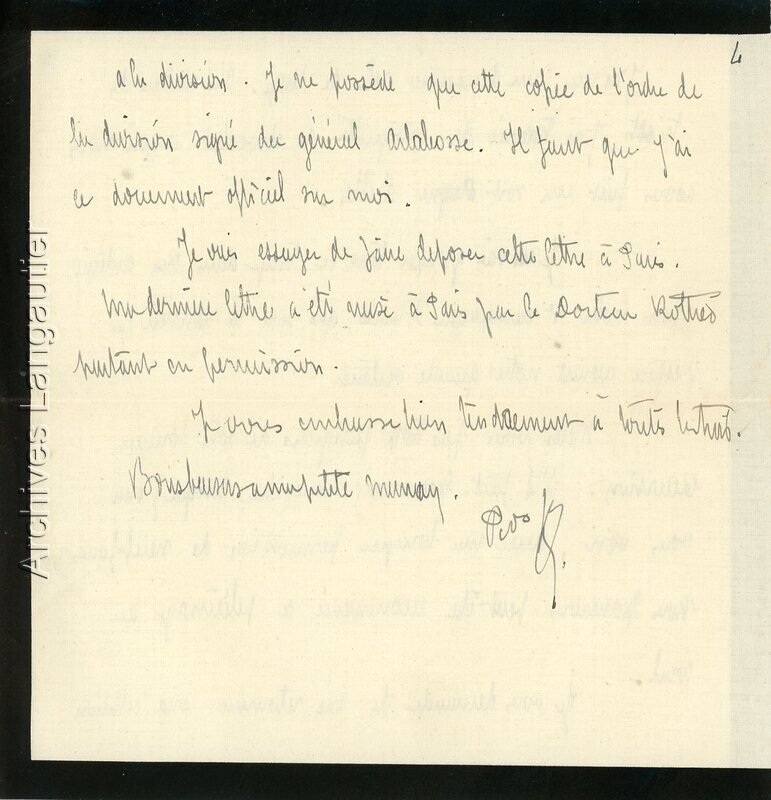 4
a la division. Je ne possède que cette copie de l'ordre de
la division signé du général Arlabosse. Il faut que j'ai
ce document officiel sur moi.
Je vais essayer de faire deposer cette lettre à Paris.
Ma dernière lettre a été mise à Paris par le Docteur
partant en permission.
Je vous embrasse bien tendrement à toutes les trois.
Bons baisers a ma petite
Archives Langautier